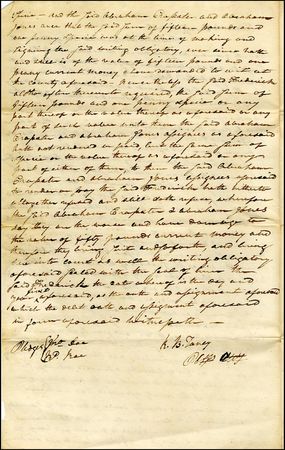 Time — and the said Abraham Crapster and Abraham
Jones aver that the said sum of fifteen pounds and
one penny Specie was at the time of making and
signing the said writing obligatory, ever since hath
and still is of the value of fifteen pounds and one
penny current money &
the county aforesaid. Nevertheless the said Frederick
although often thereunto required the said sum of
fifteen pounds and one penny specie or any
part thereof or the value thereof as aforesaid or any
part of such value
Crapster and Abraham Jones assignees as aforesaid
hath not rendered or paid, but the same sum of
Specie or the value thereof as aforesaid or any
part of either of them, to them the said Abraham
Crapster and Abraham Jones assignees aforesaid
to render or pay the said Frederick hath hitherto
altogether refused and still doth refuse, wherefore
the said Abraham Crapster & Abraham Jones
say they are the worse and have damage to
the value of fifty pounds current money and
therefore they bring suit and so forth, and bring
into court as well the writing obligatory
aforesaid sealed with the seal of him the
said Frederick the date whereof is the day and
year aforesaid, as the
which the debt date and assignment aforesaid
in form aforesaid
Pledges Jno. Doe
R. Roe
R. B. Taney